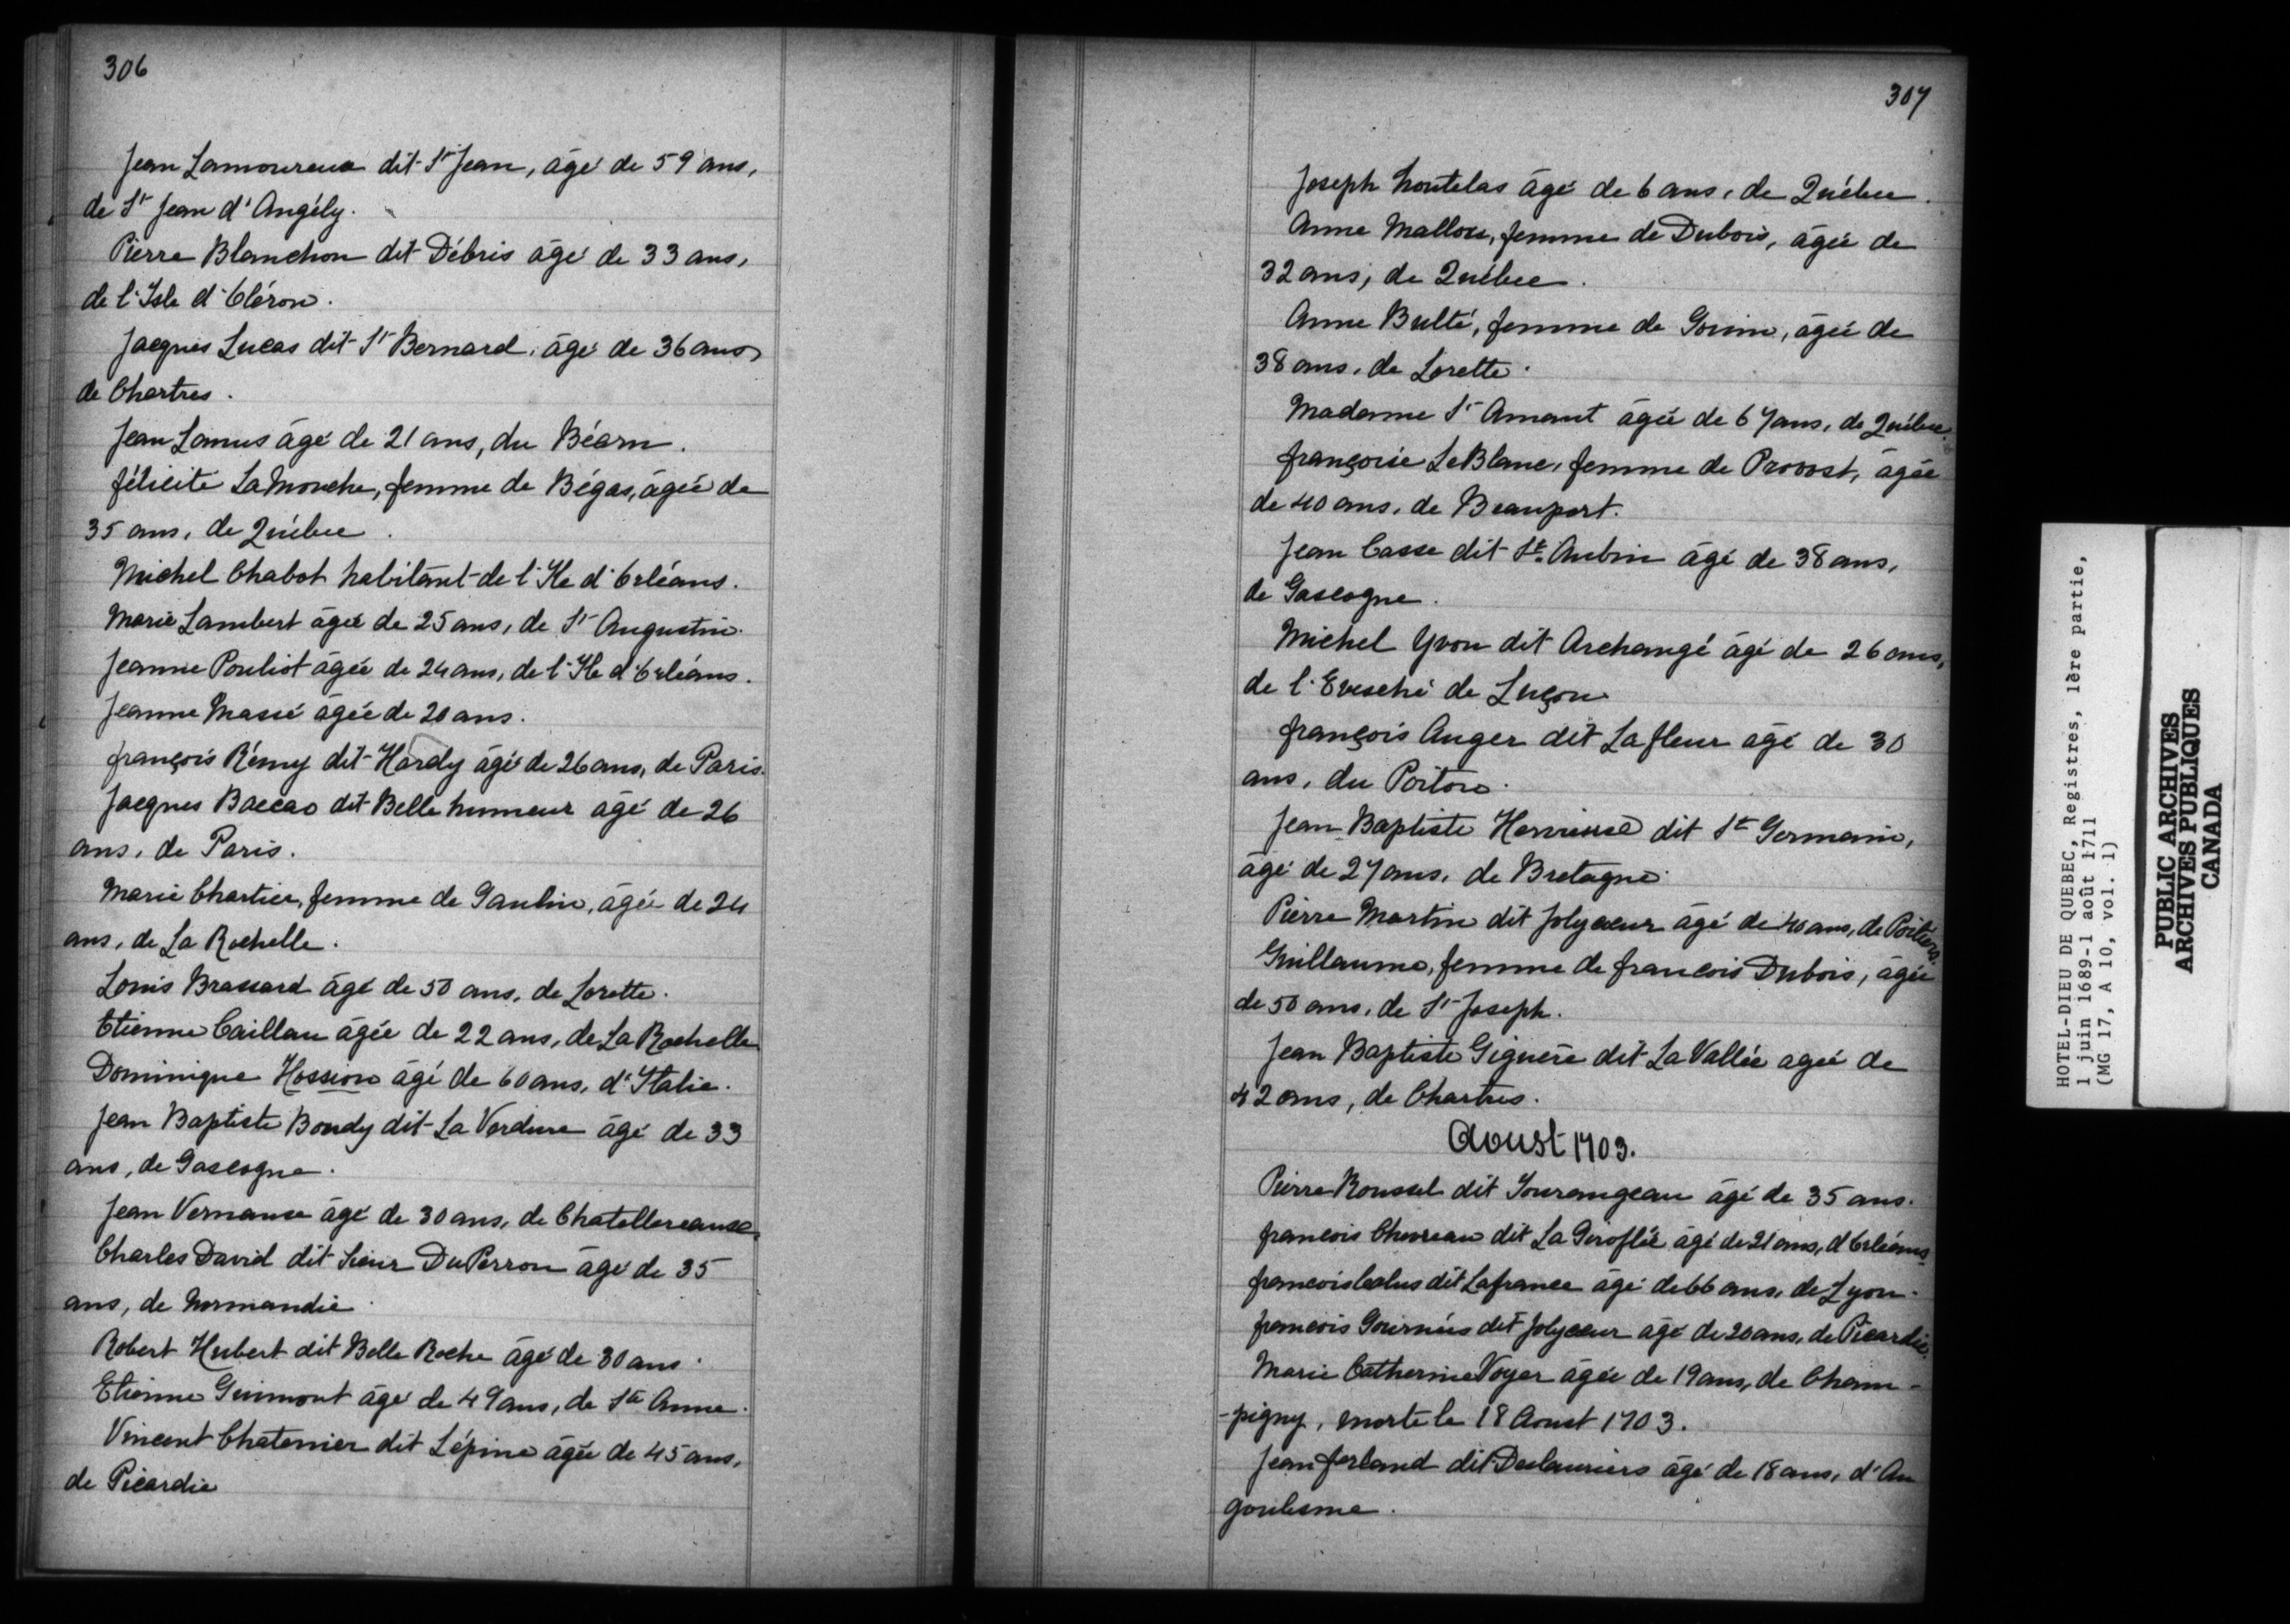 306
Jean Lamoureux dit St Jean, âgé de 59 ans,
de St Jean d'Angély.
Pierre Blanchon dit Débris âgé de 33 ans,
de l'Isle d'Oléron.
Jacques Lucas dit St Bernard, âgé de 36 ans,
de Chartres.
Jean Lanus âgé de 21 ans, du Béarn.
félicité LaMouche, femme de Bégas, âgée de
35 ans, de Québec.
Michel Chabot habitant de l'Ile d'Orléans.
Marie Lambert âgée de 25 ans, de St Augustin.
Jeanne Pouliot âgée de 24 ans, de l'Ile d'Orléans.
Jeanne Massé âgée de 20 ans.
françois Rémy dit Hardy âgé de 26 ans, de Paris.
Jacques Baccao dit Belle humeur âgé de 26
ans, de Paris.
Marie Chartier, femme de Gaulin, âgée de 24
ans, de La Rochelle.
Louis Brassard âgé de 50 ans, de Lorette.
Etienne Caillau âgée de 22 ans, de La Rochelle
Dominique Hossion âgé de 60 ans, d'Italie.
Jean Baptiste Boudy dit La Verdure âgé de 33
ans, de Gascogne.
Jean Vernause âgé de 30 ans, de Chatellereause.
Charles David dit Sieur DuPerron âgé de 35
ans, de Normandie.
Robert Hubert dit Belle Roche âgé de 30 ans.
Etienne Guimont âgé de 49 ans, de Ste Anne.
Vincent Chatenier dit Lépine âgée de 45 ans,
de Picardie
307
Joseph Noutelas âgé de 6 ans, de Québec.
Anne Mallou, femme de Dubois, âgée de
32 ans, de Québec.
Anne Bulté, femme de Gorim, âgée de
38 ans, de Lorette.
Madame St Amant âgée de 67 ans, de Québec.
françoise LeBlanc, femme de Provost, âgée
de 40 ans, de Beauport.
Jean Casse dit St. Aubin âgé de 38 ans,
de Gascogne.
Michel Yvon dit Archangé âgé de 26 ans,
de l'Evesché de Luçon
françois Auger dit Lafleur âgé de 30
ans, du Poitou.
Jean Baptiste dit St Germain,
âgé de 27 ans, de Bretagne.
Pierre Martin dit Jolycœur âgé de 40 ans, de Poitiers.
Guillaume, femme de francois Dubois, âgée
de 50 ans, de St Joseph.
Jean Baptiste Giguère dit La Vallée agée de
42 ans, de Chartres.
Aoust 1703.
Pierre Roussel dit Tourangeau âgé de 35 ans.
francois Chevreau dit La Giroflée âgé de 21 ans, d'Orléans
francois Calus dit Lafrance âgé de 66 ans, de Lyon.
francois Gournées dit Jolycœur âgé de 20 ans, de Picardie.
Marie Catherine Voyer âgée de 19 ans, de Cham-
-pigny, morte le 18 Aoust 1703.
Jean ferland dit Deslauriers âgé de 18 ans, d'An
goulesme.
HOTEL-DIEU DE QUEBEC, Registres, 1ère partie,
1 juin 1689-1 août 1711
(MG 17, A 10, vol. 1)
PUBLIC ARCHIVES
ARCHIVES PUBLIQUES
CANADA